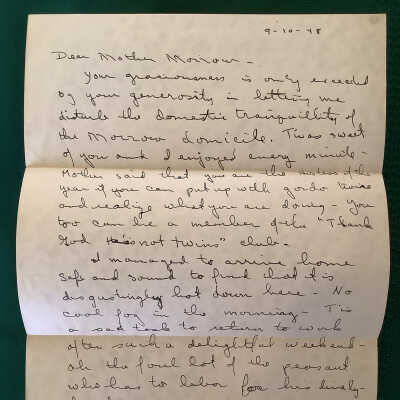 9-10-48
Dear Mother Morrow -
Your graciousness is only exceeded
by your generosity in letting me
disturb the domestic tranquility of
the Morrow domicile. Twas sweet
of you and I enjoyed every minute -
Mother said that you are the of the
year if you can put up with gordo twice
and realize what you are doing - You
too can be a member of the "Thank
God He's not twins" club -
I managed to arrive home
safe and sound to find that it is
disgustingly hot down here - No
cool fog in the morning - Tis
a sad task to return to work
after such a delightful weekend -
ah the lot of the peasant
who has to labor for his lively-